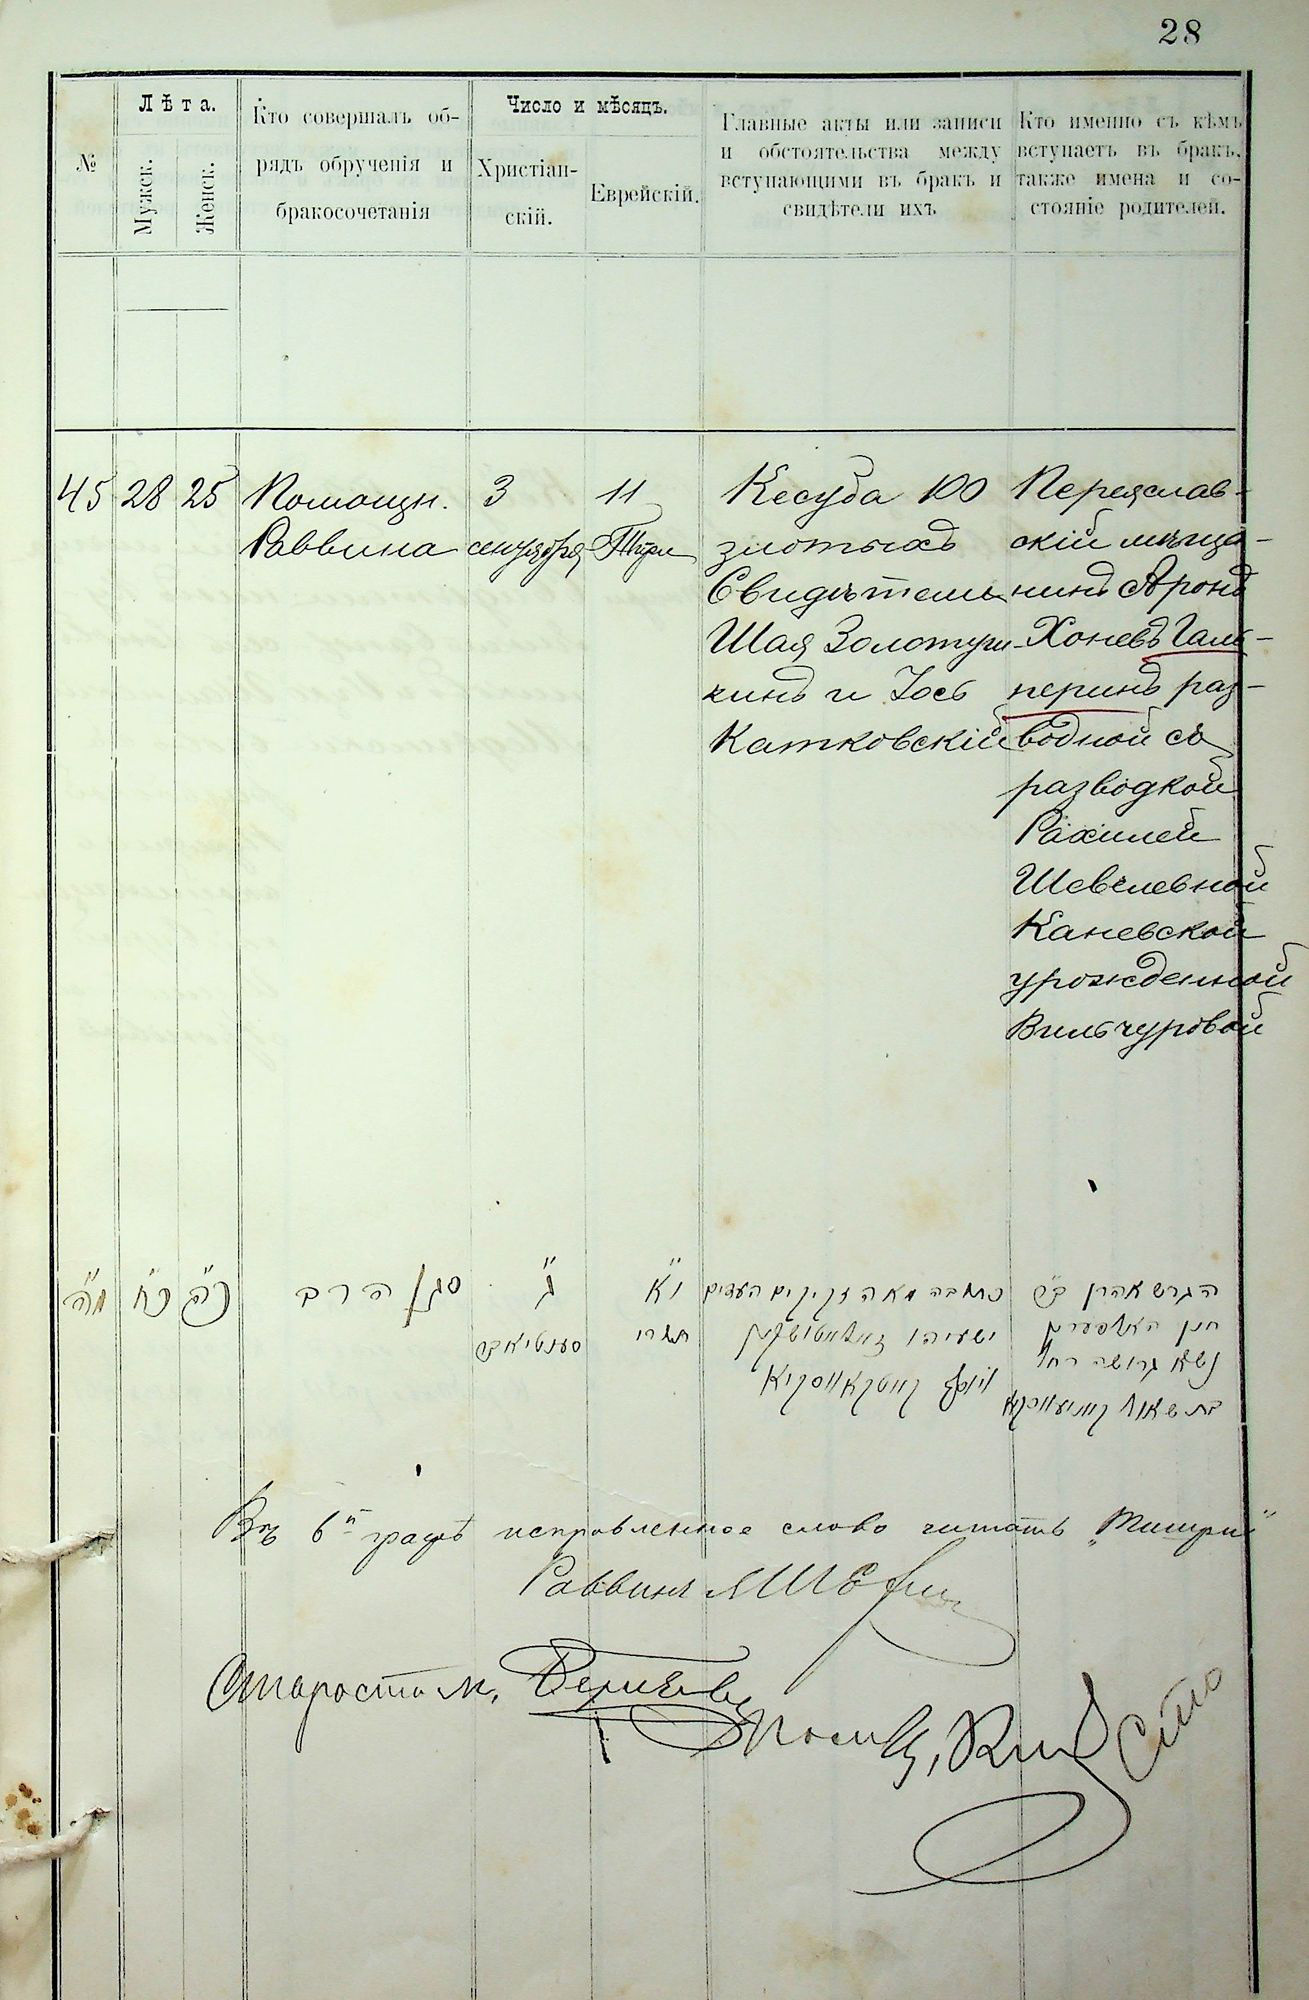 28
№
Лѣта.
Мужск.
Женск.
Кто совершалъ об-
рядъ обрученія и
бракосочетанія
Число и мѣсяцъ.
Христіан-
скій.
Еврейскій.
Главные акты или записи
и обстоятельства между
вступающими въ бракъ и
свидѣтели ихъ
Кто именно съ кѣмъ
вступаетъ въ бракъ,
также имена и со-
стояніе родителей.
45
28
25
Помощн.
Раввина
3
сентября
11
Кесуба 100
злотыхъ
Свидѣтели
Шая Золотуш-
кинъ и Іось
Катковскій
Переяслав-
скій мѣща-
нинъ Аронъ
Хоневъ Галь-
перинъ раз-
водной съ
разводкой
Рахилей
Шевелевной
Каневской
урожденной
Вильчуровой
מ״ה
כ״ח
כ״ה
סגן הרב
ג״
י״א
תשרי
כתובה מאה זקוקים העדים
ישעיהו
הגרש אהרן
נשא גרושה רחל
בת שאול
Въ 6й графѣ исправленное слово читать „Тишри“
Раввинъ
Староста М.